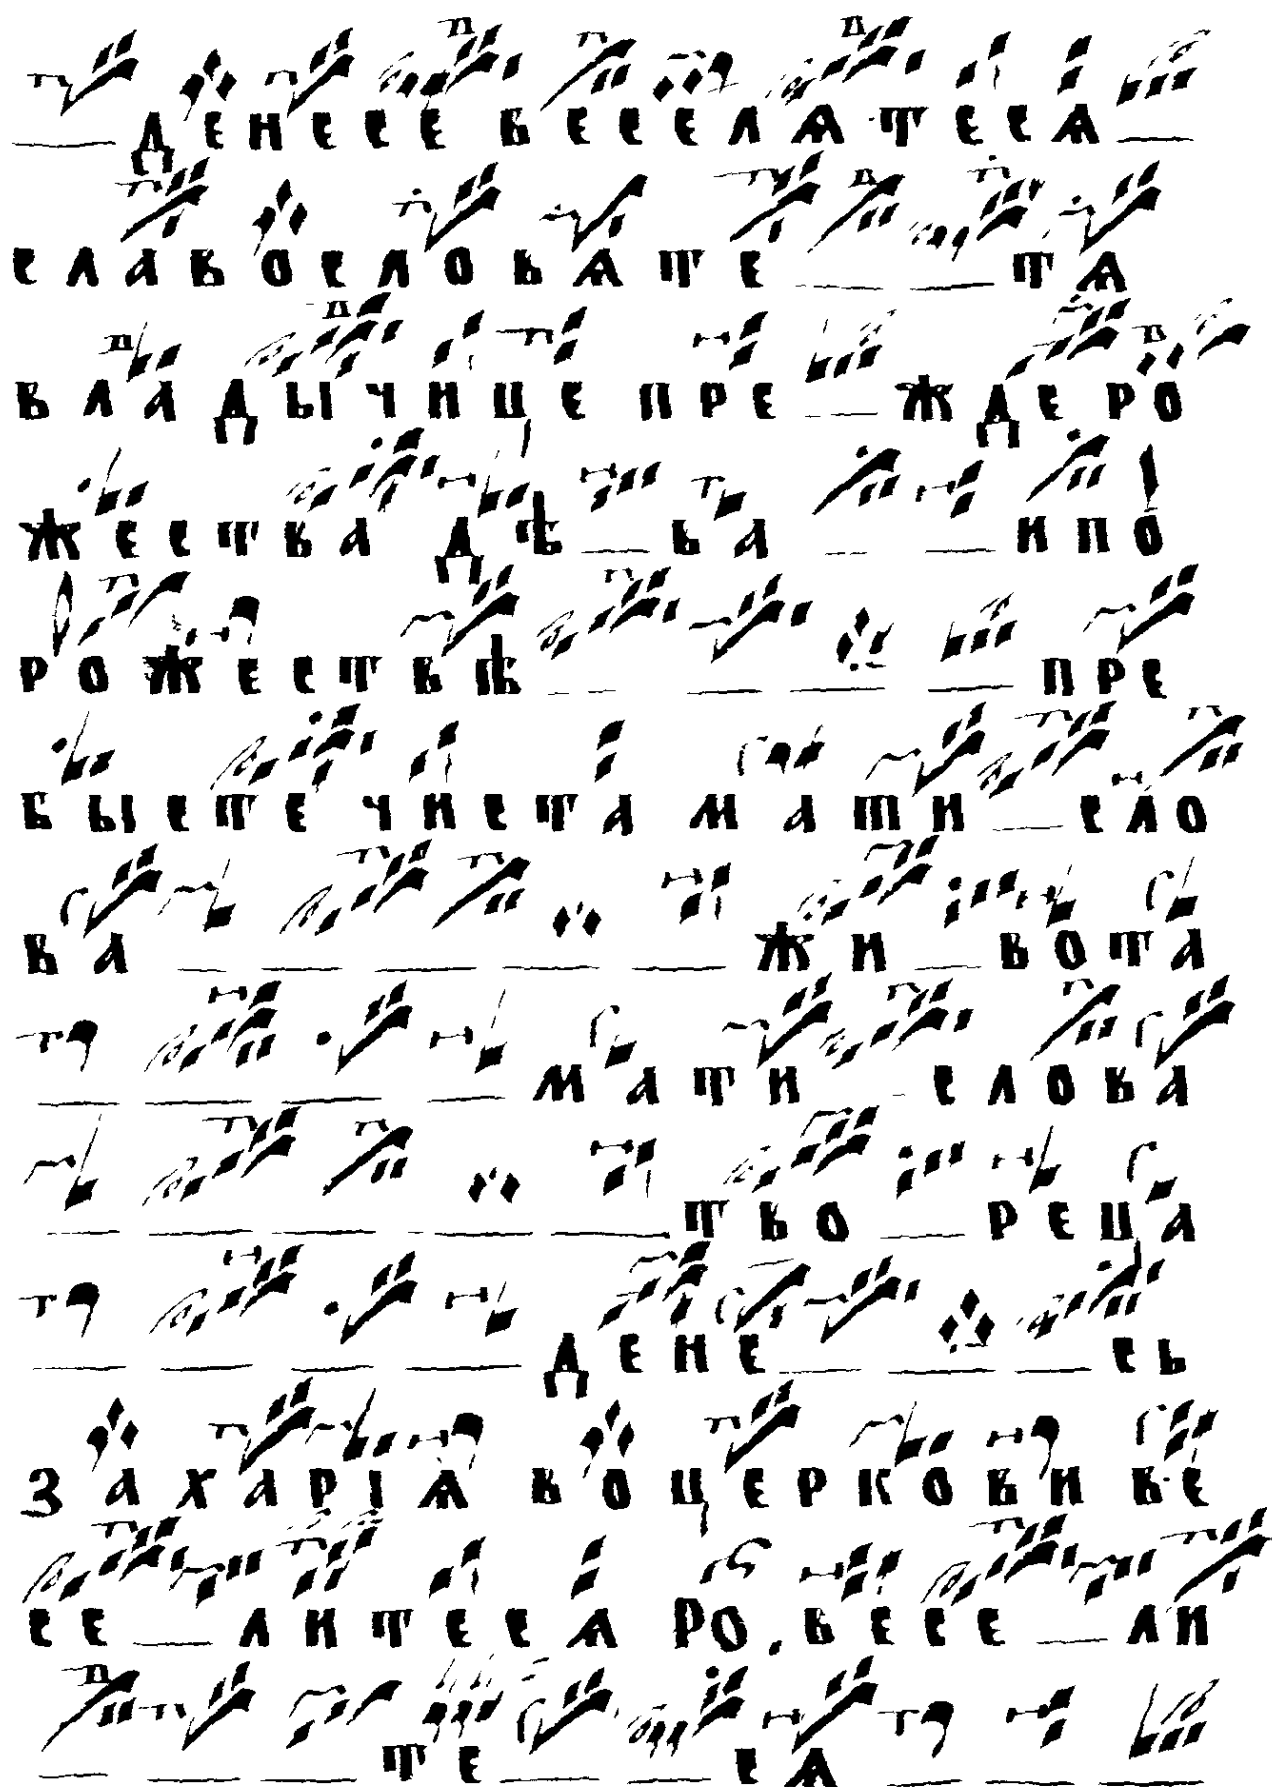 ДЕНЕСЕ ВЕСЕЛѦТЕСѦ
СЛАВОСЛОВѦТЕ ТѦ
ВЛАДЫЧИЦЕ ПРЕЖДЕРО
ЖЕСТВА ДѢВА ИПО
РОЖЕСТВѢ ПРЕ
БЫСТЕ ЧИСТА МАТИ СЛО
ВА ЖИВОТА
МАТИ СЛОВА
ТВОРЕЦА
ДЕНЕСЬ
ЗАХАРІѦ ВОЦЕРКОВИ ВЕ
СЕЛИТЕСѦ РО. ВЕСЕЛИ
ТЕСѦ